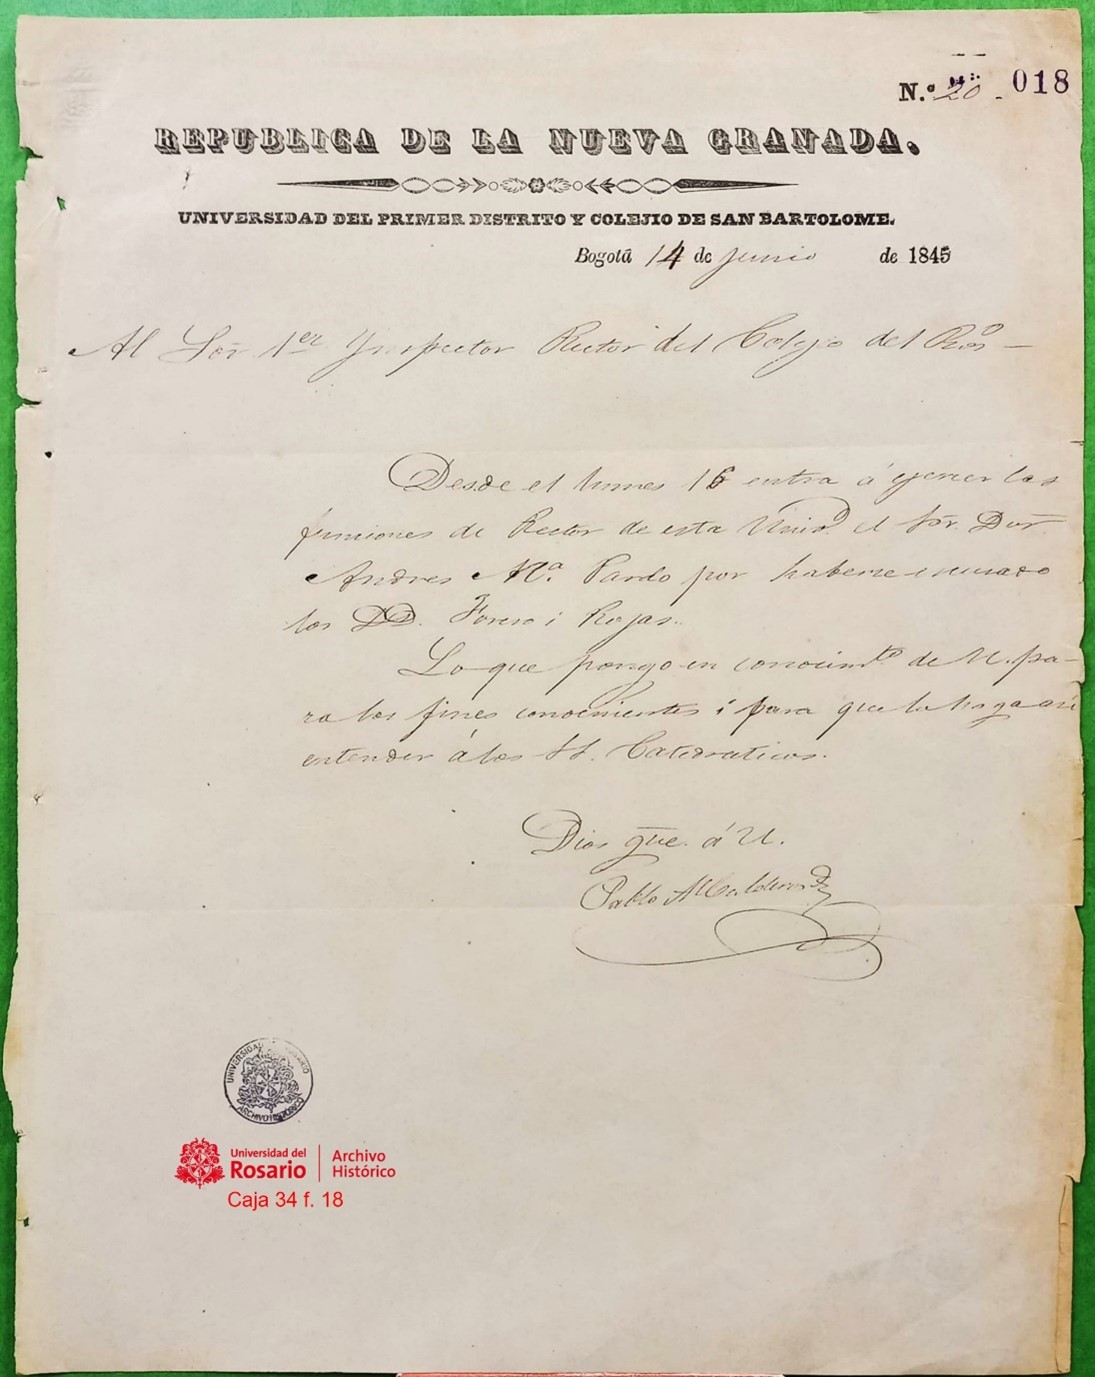 N.º 20 - 018
REPUBLICA DE LA NUEVA GRANADA.
UNIVERSIDAD DEL PRIMER DISTRITO Y COLEJIO DE SAN BARTOLOME.
Bogotá 14 de junio de 1845
Al Sor. 1er Ynspector Rector del Colejio del Roso
Desde el lunes 16 entra á ejercer las
funciones de Rector de esta Univd. el Sor. Dor
Andres Ma. Pardo por haberse escusado
los DD. Forero i Rojas.
Lo que pongo en conocimto de U. pa-
ra los fines convenientes i para que lo haga asi
entender á los SS. Catedraticos.
Dios gue. á U.
Pablo A Calderon
UNIVERSIDAD ROSARIO
ARCHIVO HISTORICO
Universidad del Rosario Archivo Histórico
Caja 34 f. 18